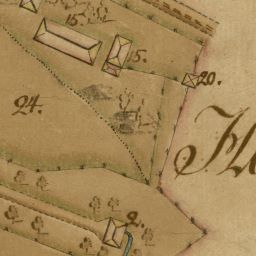 15.
15.
20.
24.
2.